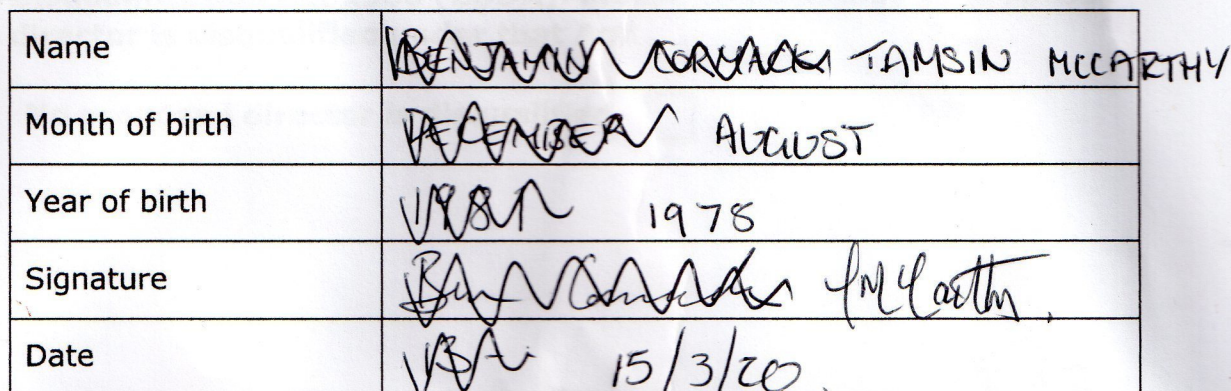 Name BENJAMIN CORMACK TAMSIN MCCARTHY
Month of birth DECEMBER AUGUST
Year of birth 1981 1978
Signature Ben Cormack TMcCarthy
Date 15/3/20